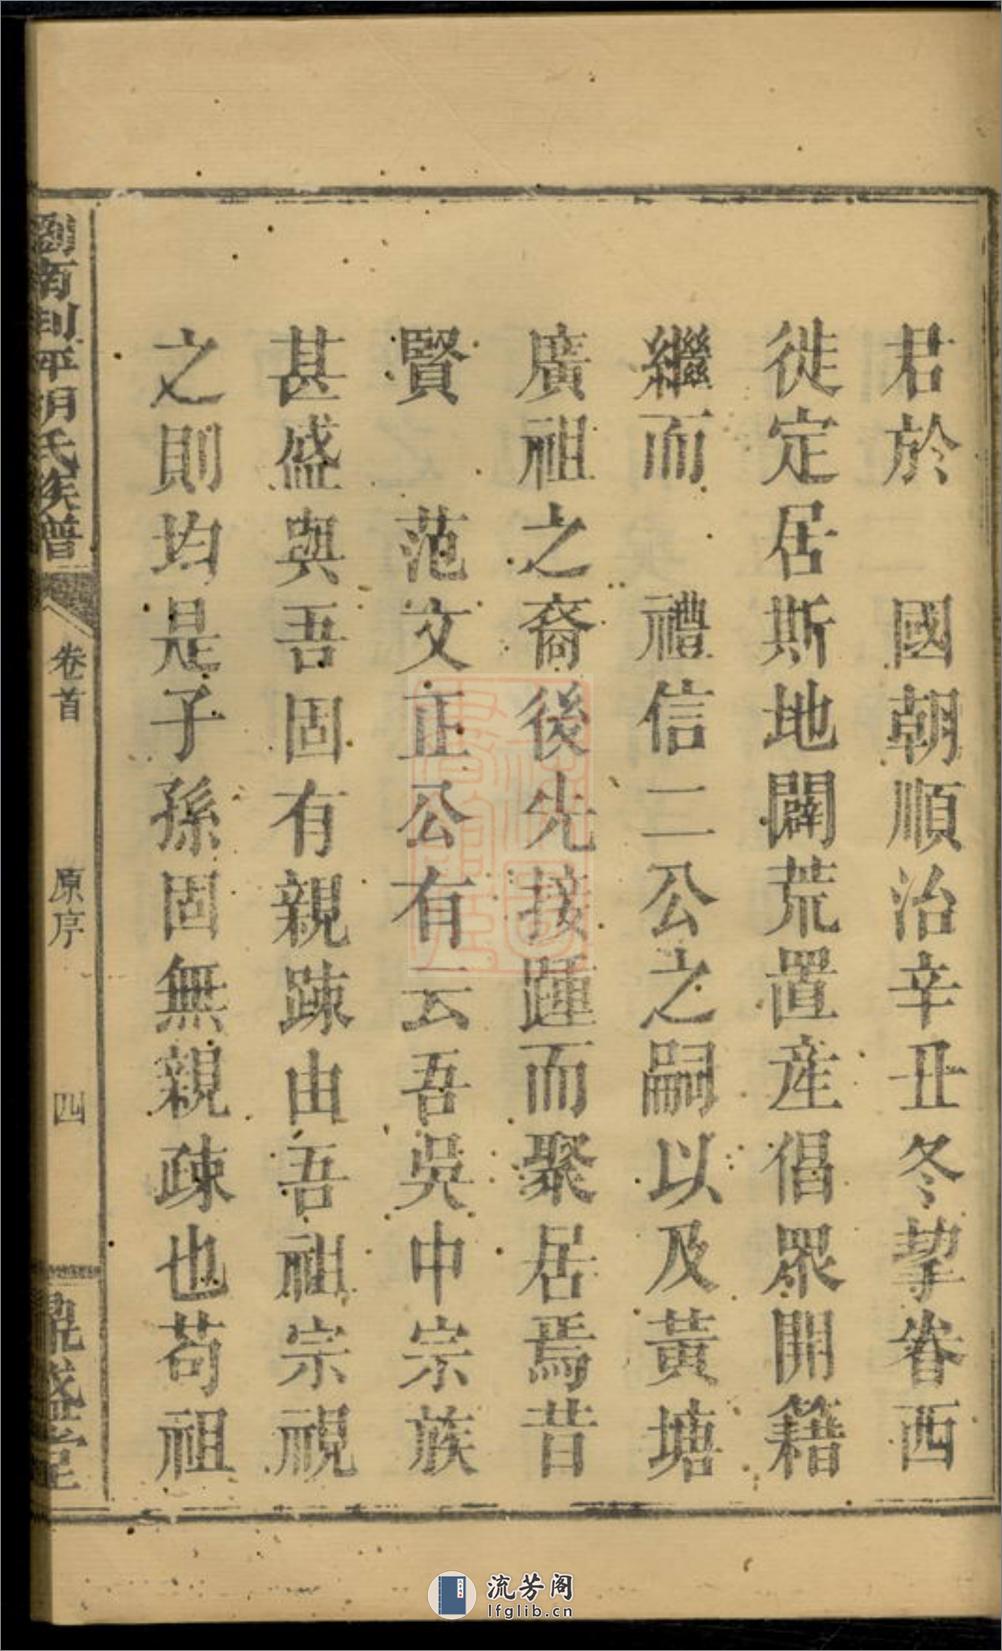 君於　國朝順治辛丑冬挈眷西
徙定居斯地闢荒置産倡眾開籍
繼而　禮信二公之嗣以及黃塘
廣祖之裔後先接踵而聚居焉昔
賢　范文正公有云吾吳中宗族
甚盛與吾固有親疎由吾祖宗視
之則均是子孫固無親疎也苟祖
南 平胡氏族譜
卷首
原序
四
盛堂
流芳阁
lfglib.cn